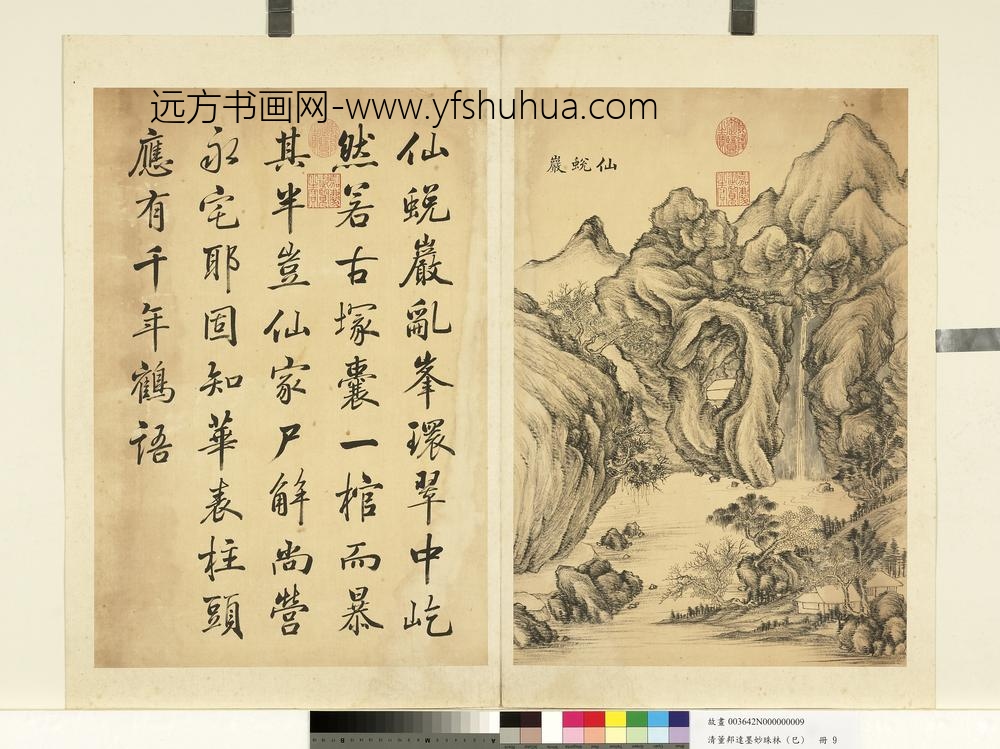 远方书画网-www.yfshuhua.com
仙蛻巖亂峯環翠中屹
然若古塚囊一棺而暴
其半豈仙家尸解尚營
永宅耶固知華表柱頭
應有千年鶴語
仙蛻巖
故畫 003642N000000009
清董邦達墨妙珠林(巳) 冊 9